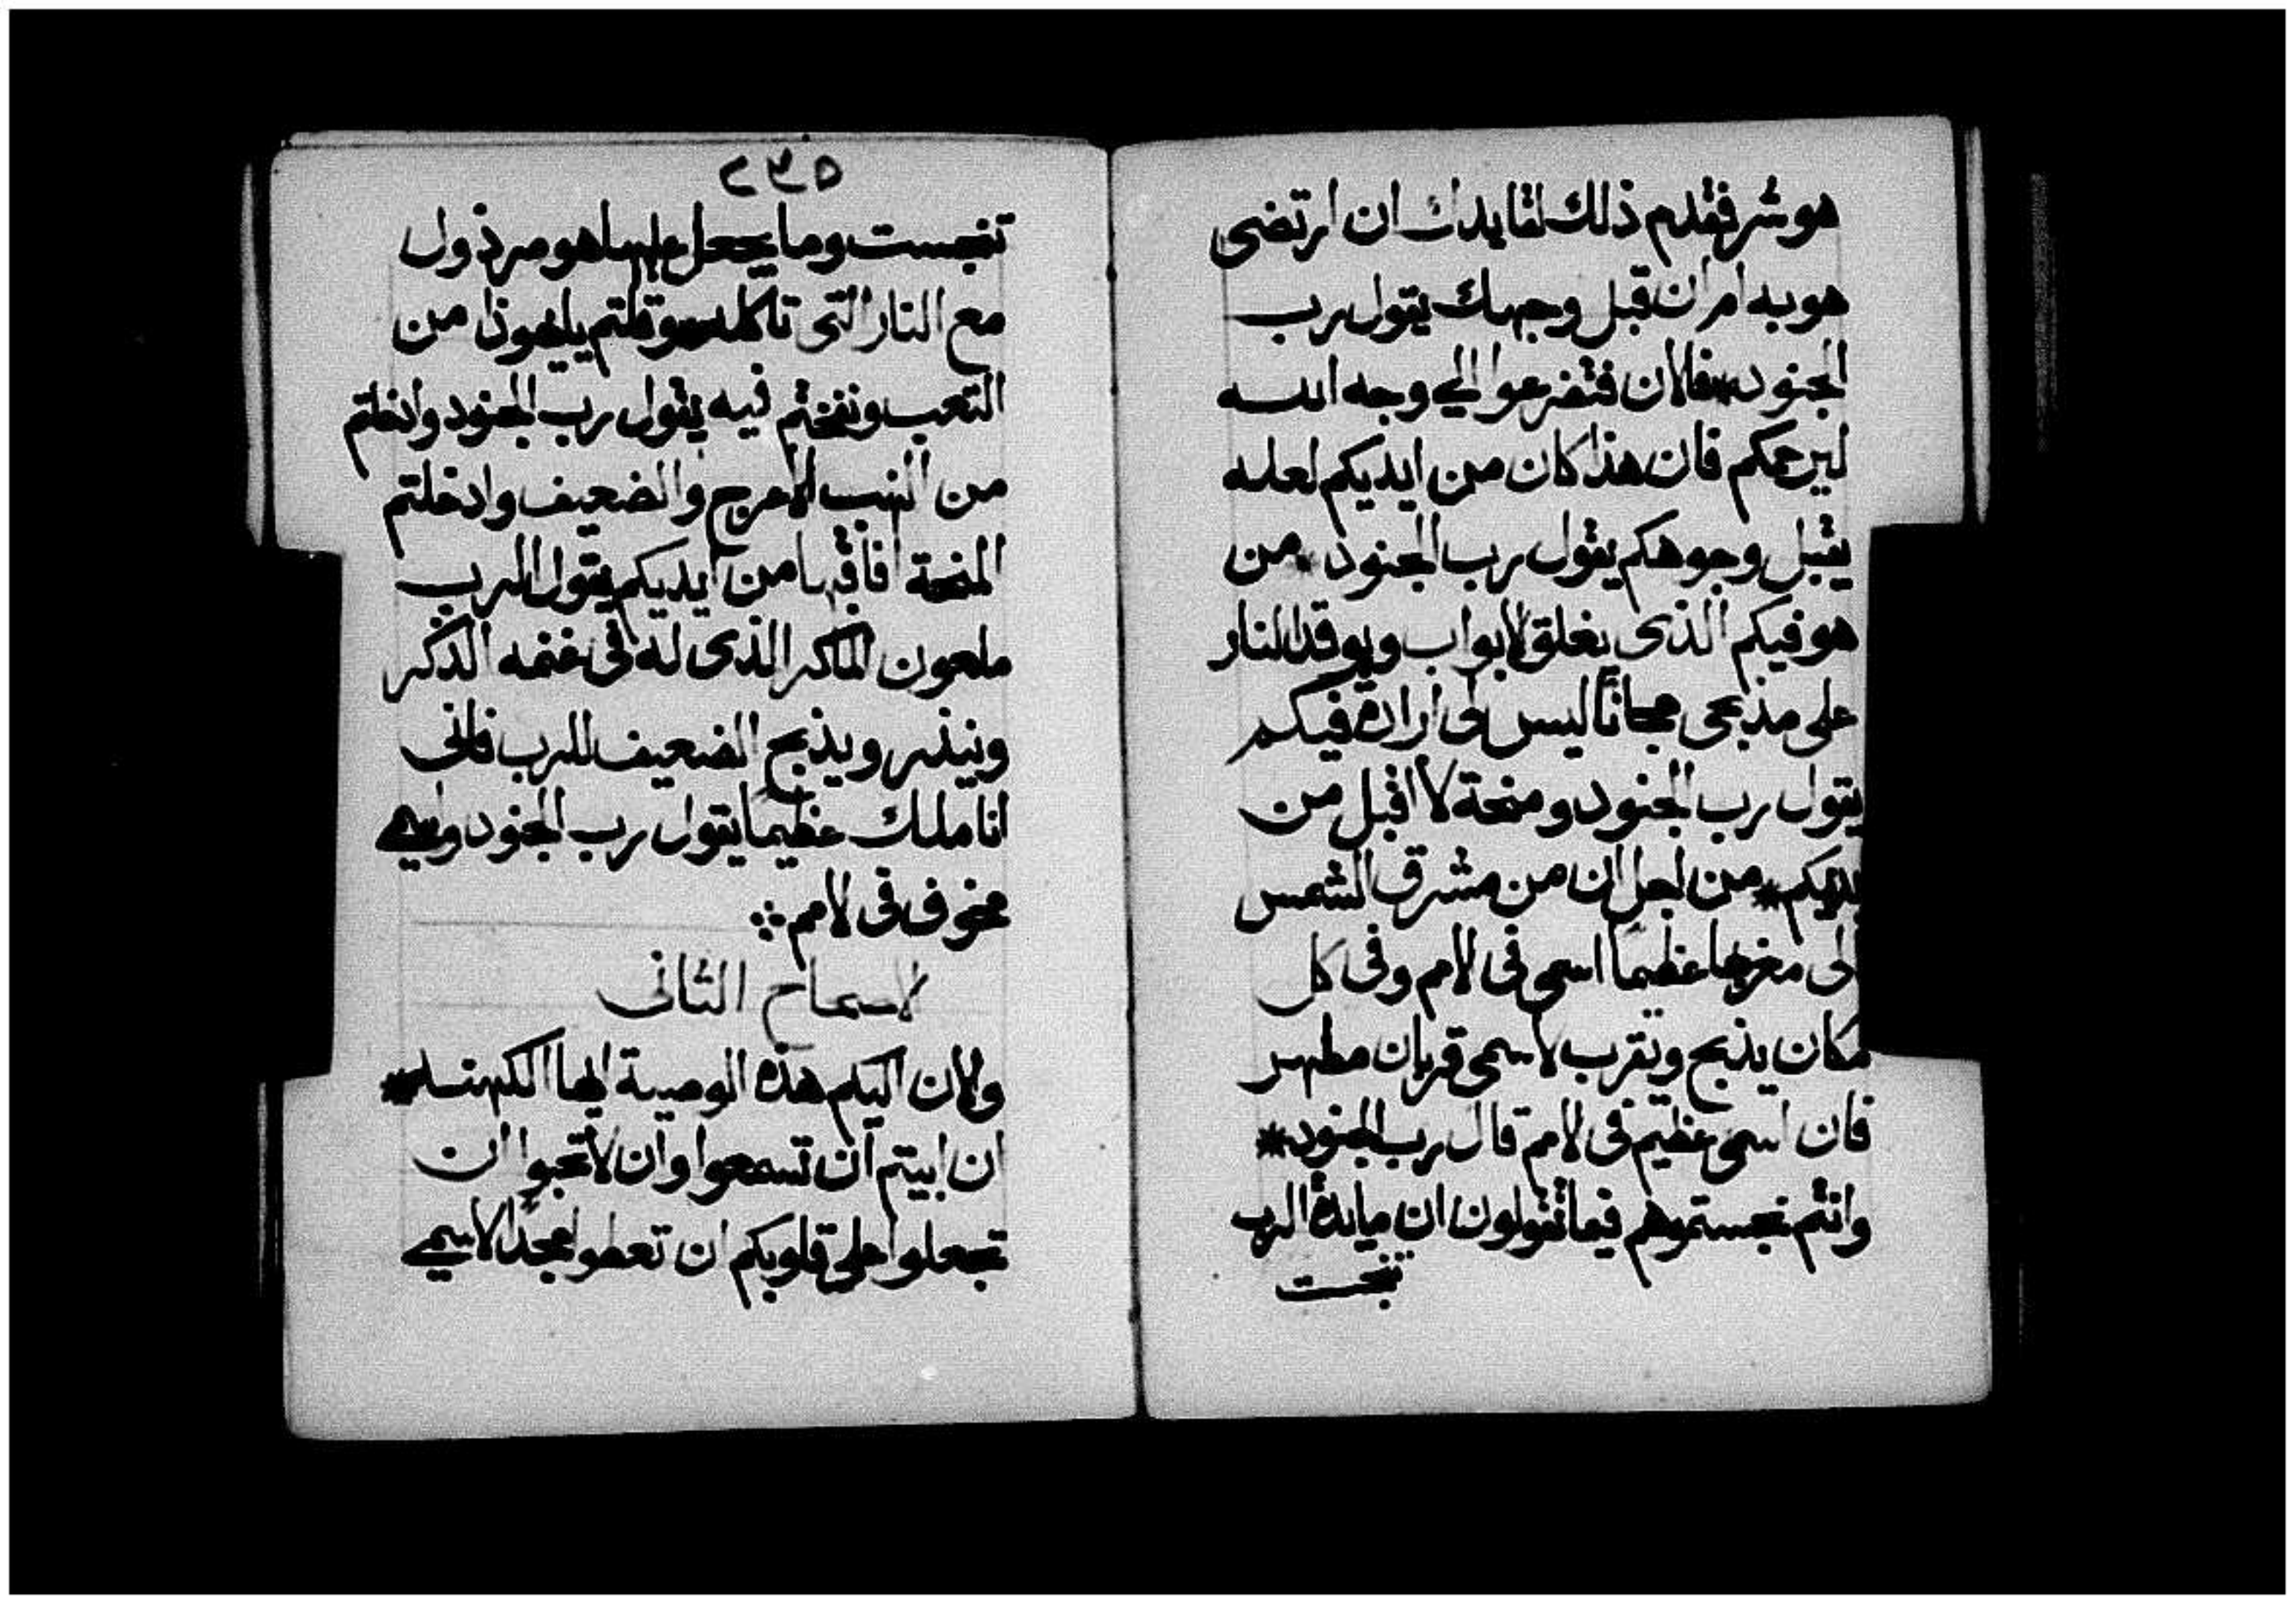 هو شر فقدم ذلك لقايدك ان ارتضى
هو به امر ان قبل وجهك يقول رب
الجنود * فالان فتضرعوا الي وجه الله
ليرحمكم فان هذا كان من ايديكم لعله
يقبل وجوهكم يقول رب الجنود * من
هو فيكم الذى يغلق لابواب ويوقد النار
على مذبحى مجاناً ليس لى ارادة فيكم
يقول رب الجنود ومنحة لا اقبل من
يديكم * من لجل ان من مشرق الشمس
الى مغربها عظيماً اسمى فى لامم وفى كل
مكان يذبح ويقرب لاسمى قربان مطهر
فان اسمى عظيم فى لامم قال رب الجنود *
وانتم نجستموهم فيما تقولون ان مايدة الرب
تنجست
٢٣٥
تنجست وما يجعل عليها هو مرذول
مع النار التى تاكله وقلتم ياهوذا من
التعب ونفختم فيه يقول رب الجنود وادخلتم
من النهب الاعرج والضعيف وادخلتم
المنحة افاقبلها من ايديكم يقول الرب
ملعون الماكر الذى له فى غنمه الذكر
وينذر ويذبح الضعيف للرب فانى
انا ملك عظيماً يقول رب الجنود واسمي
مخوف فى لامم
لاصحاح الثانى
ولان اليكم هذه الوصية ايها الكهنة *
ان ابيتم ان تسمعوا وان لا تحبوا ان
تجعلوا على قلوبكم ان تعطوا مجداً لاسمي